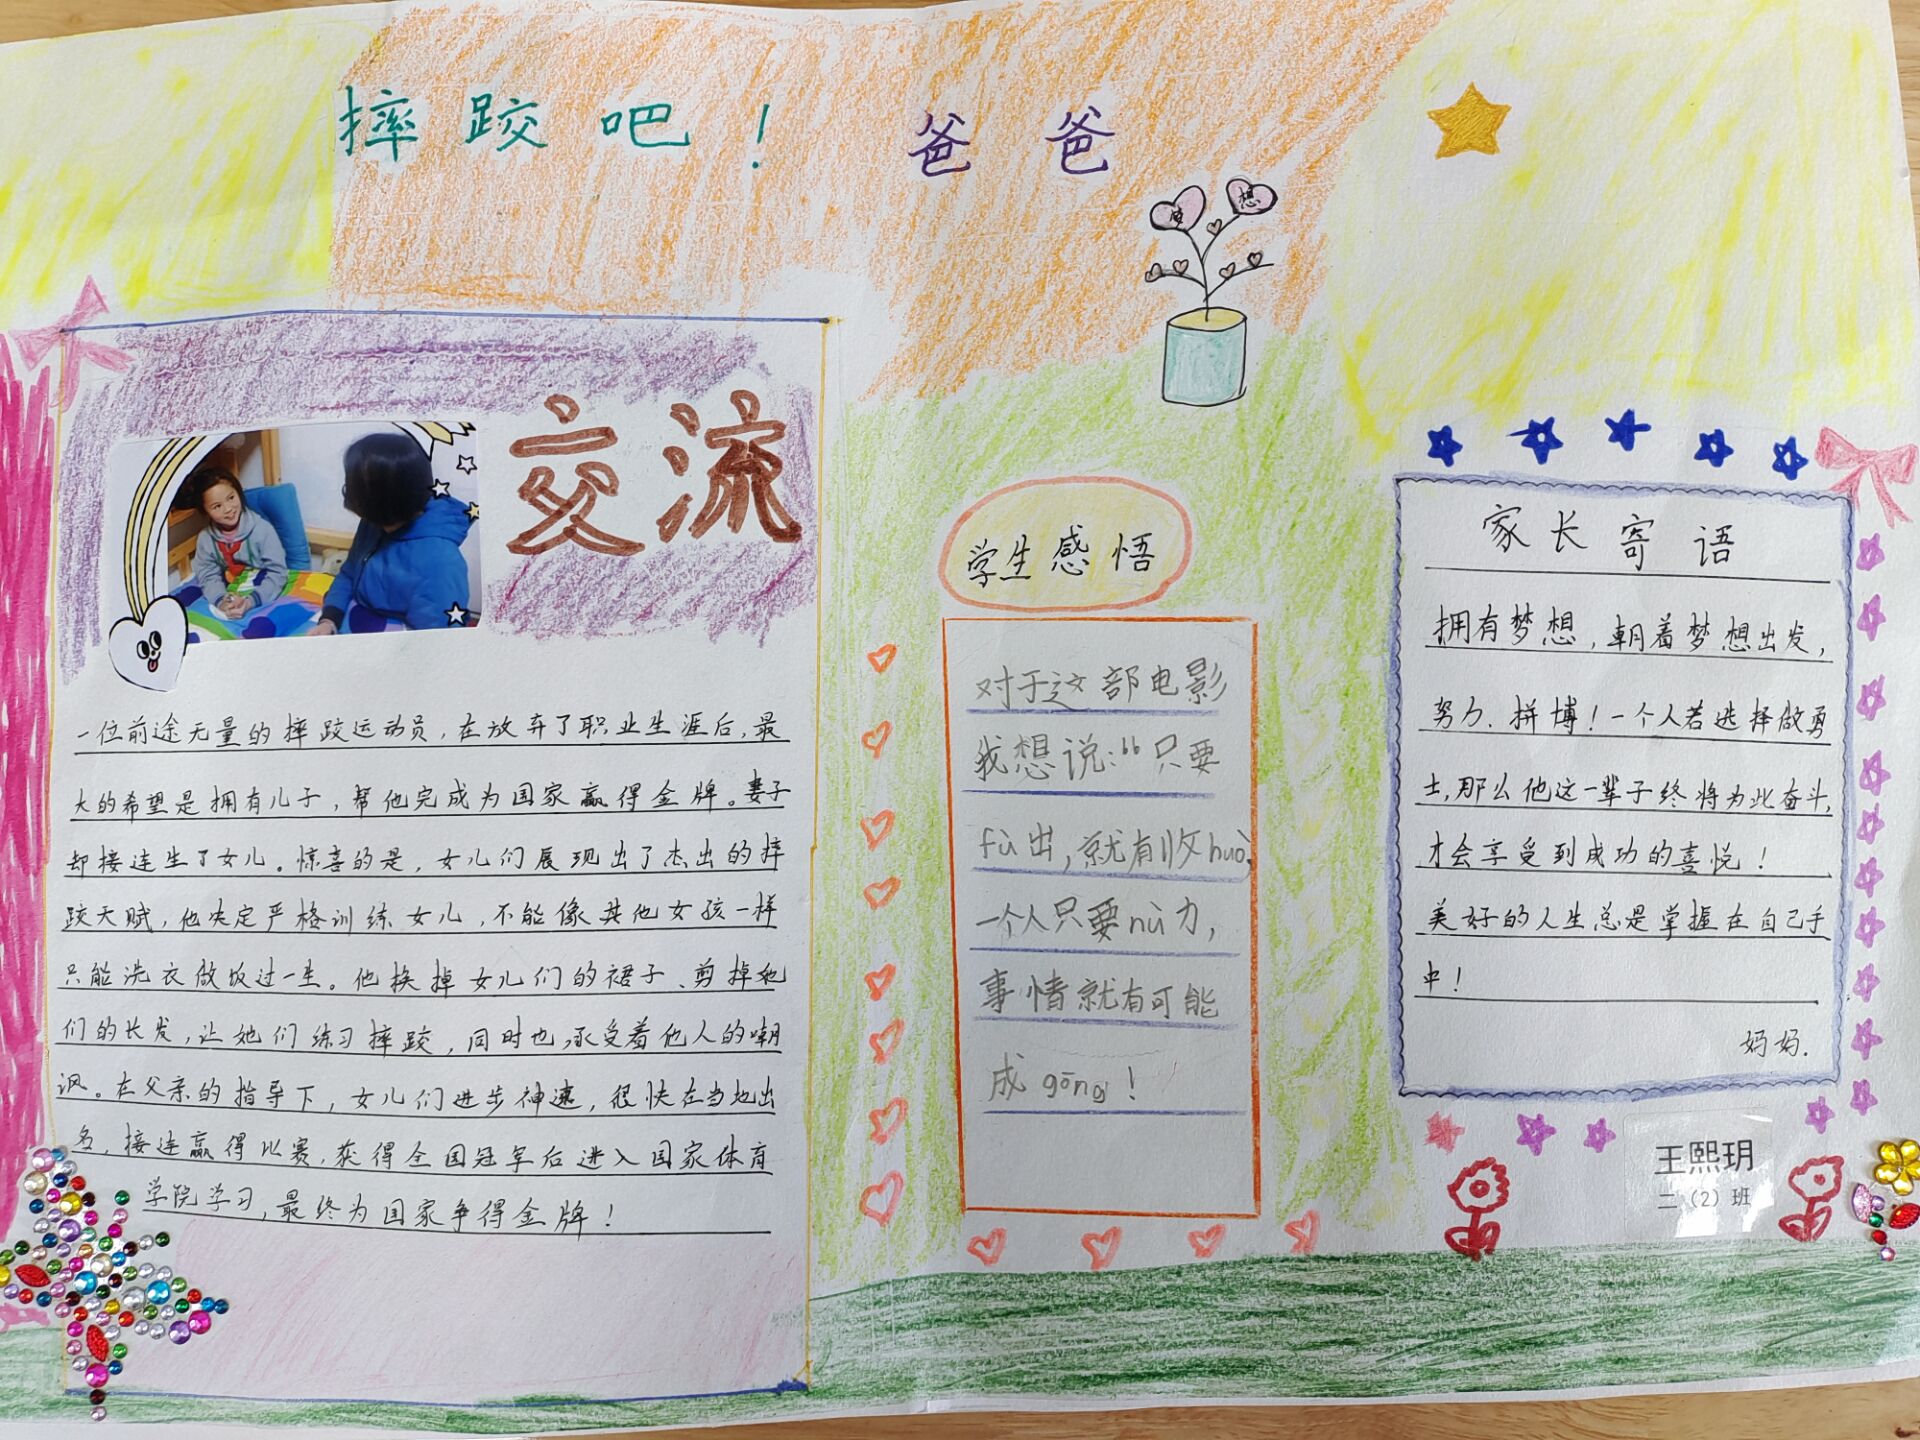 摔跤吧！ 爸爸
梦 想
交流
一位前途无量的摔跤运动员，在放弃了职业生涯后，最
大的希望是拥有儿子，帮他完成为国家赢得金牌。妻子
却接连生了女儿。惊喜的是，女儿们展现出了杰出的摔
跤天赋，他决定严格训练女儿，不能像其他女孩一样
只能洗衣做饭过一生。他换掉女儿们的裙子、剪掉她
们的长发，让她们练习摔跤，同时也承受着他人的嘲
讽。在父亲的指导下，女儿们进步神速，很快在当地出
名，接连赢得比赛，获得全国冠军后进入国家体育
学院学习，最终为国家争得金牌！
学生感悟
对于这部电影
我想说：“只要
fù出，就有收huò，
一个人只要nǔ力，
事情就有可能
成gōng！
家长寄语
拥有梦想，朝着梦想出发，
努力、拼搏！一个人若选择做勇
士，那么他这一辈子终将为此奋斗，
才会享受到成功的喜悦！
美好的人生总是掌握在自己手
中！
妈妈.
王熙玥
二（2）班